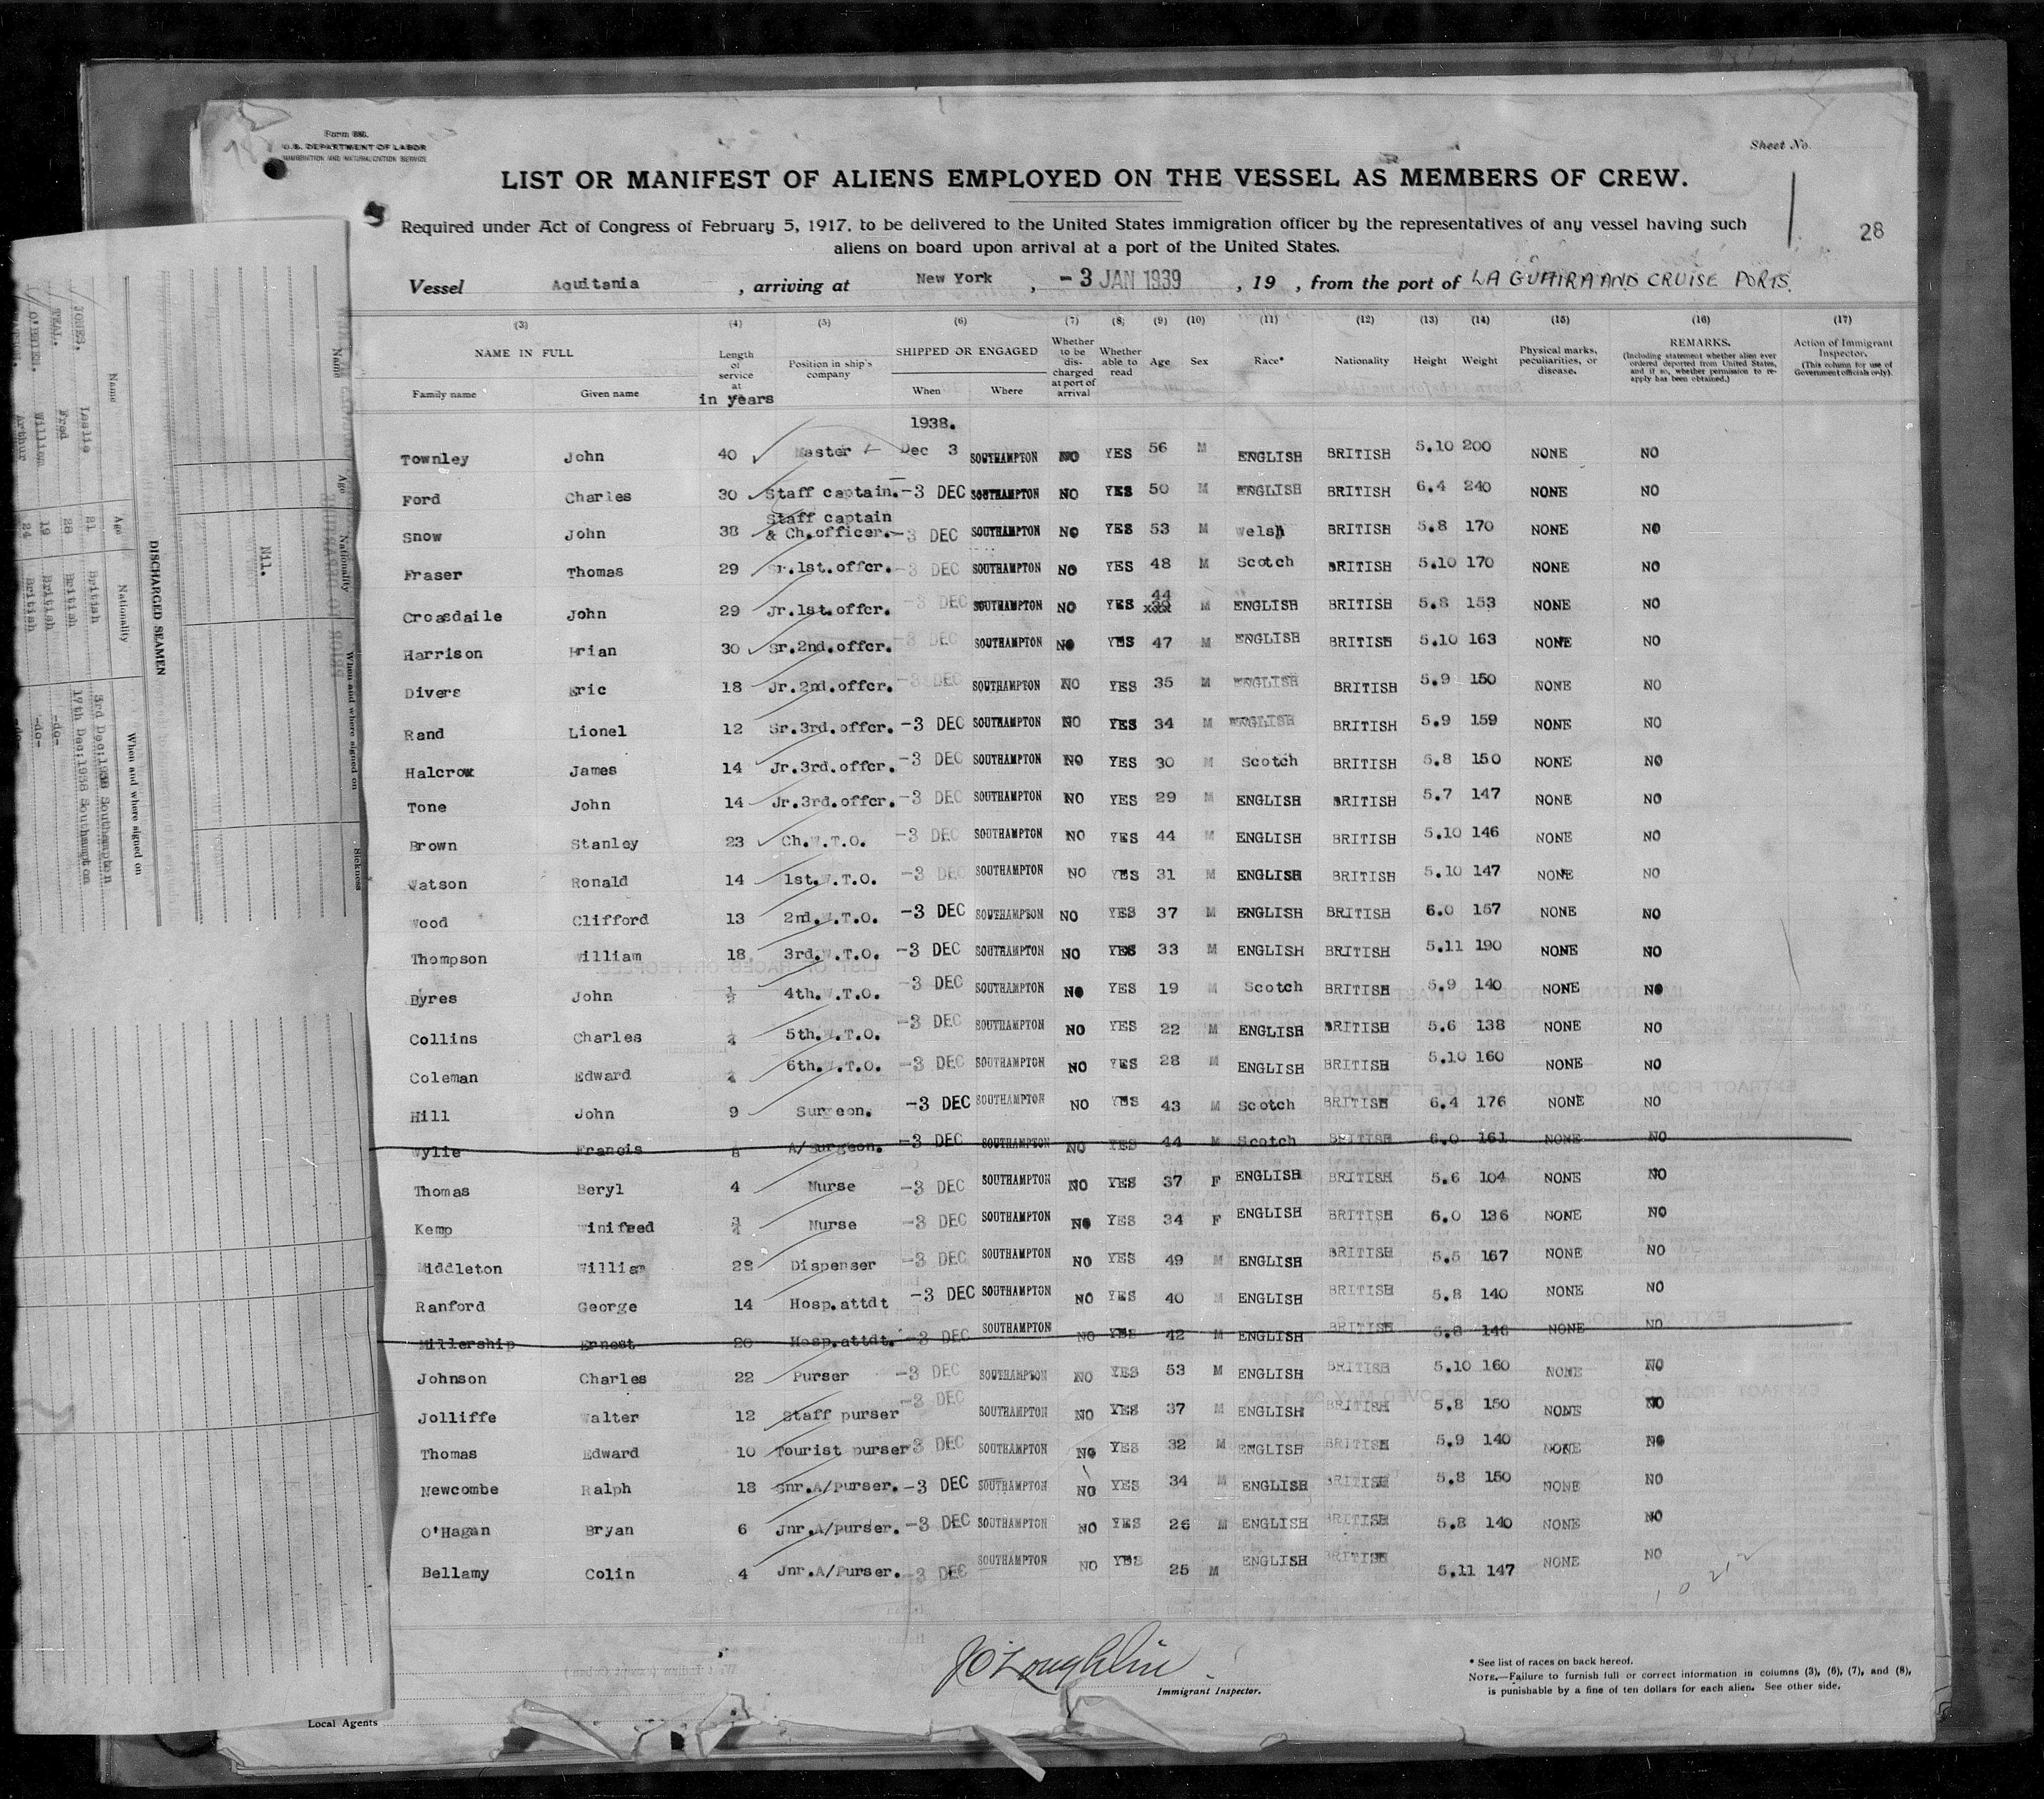 Form 680.
U.S. DEPARTMENT OF LABOR
IMMIGRATION AND NATURALIZATION SERVICE
Sheet No.
LIST OR MANIFEST OF ALIENS EMPLOYED ON THE VESSEL AS MEMBERS OF CREW.
28
Required under Act of Congress of February 5, 1917, to be delivered to the United States immigration officer by the representatives of any vessel having such
aliens on board upon arrival at a port of the United States.
Vessel Aquitania , arriving at New York , -3 JAN 1939 , 19 , from the port of LA GUAIRA AND CRUISE PORTS.
(3) (4) (5) (6) (7) (8) (9) (10) (11) (12) (13) (14) (15) (16) (17)
NAME IN FULL Family name Given name Length of service at in years Position in ship's company SHIPPED OR ENGAGED When Where Whether to be discharged at port of arrival Whether able to read Age Sex Race* Nationality Height Weight Physical marks, peculiarities, or disease. REMARKS. (Including statement whether alien ever ordered deported from United States, and if so, whether permission to reapply has been obtained.) Action of Immigrant Inspector. (This column for use of Government officials only).
1938.
Townley John 40 Master Dec 3 SOUTHAMPTON NO YES 56 M ENGLISH BRITISH 5.10 200 NONE NO
Ford Charles 30 Staff captain. -3 DEC SOUTHAMPTON NO YES 50 M ENGLISH BRITISH 6.4 240 NONE NO
Snow John 38 Staff captain & Ch.officer. -3 DEC SOUTHAMPTON NO YES 53 M Welsh BRITISH 5.8 170 NONE NO
Fraser Thomas 29 Sr.1st.offcr. -3 DEC SOUTHAMPTON NO YES 48 M Scotch BRITISH 5.10 170 NONE NO
Croasdaile John 29 Jr.1st.offcr. -3 DEC SOUTHAMPTON NO YES 44 M ENGLISH BRITISH 5.8 153 NONE NO
Harrison Brian 30 Sr.2nd.offcr. -3 DEC SOUTHAMPTON NO YES 47 M ENGLISH BRITISH 5.10 163 NONE NO
Divers Eric 18 Jr.2nd.offcr. -3 DEC SOUTHAMPTON NO YES 35 M ENGLISH BRITISH 5.9 150 NONE NO
Rand Lionel 12 Sr.3rd.offcr. -3 DEC SOUTHAMPTON NO YES 34 M ENGLISH BRITISH 5.9 159 NONE NO
Halcrow James 14 Jr.3rd.offcr. -3 DEC SOUTHAMPTON NO YES 30 M Scotch BRITISH 5.8 150 NONE NO
Tone John 14 Jr.3rd.offcr. -3 DEC SOUTHAMPTON NO YES 29 M ENGLISH BRITISH 5.7 147 NONE NO
Brown Stanley 23 Ch.W.T.O. -3 DEC SOUTHAMPTON NO YES 44 M ENGLISH BRITISH 5.10 146 NONE NO
Watson Ronald 14 1st.W.T.O. -3 DEC SOUTHAMPTON NO YES 31 M ENGLISH BRITISH 5.10 147 NONE NO
Wood Clifford 13 2nd.W.T.O. -3 DEC SOUTHAMPTON NO YES 37 M ENGLISH BRITISH 6.0 157 NONE NO
Thompson William 18 3rd.W.T.O. -3 DEC SOUTHAMPTON NO YES 33 M ENGLISH BRITISH 5.11 190 NONE NO
Byres John ½ 4th.W.T.O. -3 DEC SOUTHAMPTON NO YES 19 M Scotch BRITISH 5.9 140 NONE NO
Collins Charles 5th.W.T.O. -3 DEC SOUTHAMPTON NO YES 22 M ENGLISH BRITISH 5.6 138 NONE NO
Coleman Edward 6th.W.T.O. -3 DEC SOUTHAMPTON NO YES 28 M ENGLISH BRITISH 5.10 160 NONE NO
Hill John 9 Surgeon. -3 DEC SOUTHAMPTON NO YES 43 M Scotch BRITISH 6.4 176 NONE NO
Wylie Francis 8 A/Surgeon. -3 DEC SOUTHAMPTON NO YES 44 M Scotch BRITISH 6.0 161 NONE NO
Thomas Beryl 4 Nurse -3 DEC SOUTHAMPTON NO YES 37 F ENGLISH BRITISH 5.6 104 NONE NO
Kemp Winifred ¾ Nurse -3 DEC SOUTHAMPTON NO YES 34 F ENGLISH BRITISH 6.0 136 NONE NO
Middleton William 28 Dispenser -3 DEC SOUTHAMPTON NO YES 49 M ENGLISH BRITISH 5.5 167 NONE NO
Ranford George 14 Hosp.attdt -3 DEC SOUTHAMPTON NO YES 40 M ENGLISH BRITISH 5.8 140 NONE NO
Millership Ernest 20 Hosp.attdt. -3 DEC SOUTHAMPTON NO YES 42 M ENGLISH BRITISH 5.8 146 NONE NO
Johnson Charles 22 Purser -3 DEC SOUTHAMPTON NO YES 53 M ENGLISH BRITISH 5.10 160 NONE NO
Jolliffe Walter 12 Staff purser -3 DEC SOUTHAMPTON NO YES 37 M ENGLISH BRITISH 5.8 150 NONE NO
Thomas Edward 10 Tourist purser -3 DEC SOUTHAMPTON NO YES 32 M ENGLISH BRITISH 5.9 140 NONE NO
Newcombe Ralph 18 Snr.A/Purser. -3 DEC SOUTHAMPTON NO YES 34 M ENGLISH BRITISH 5.8 150 NONE NO
O'Hagan Bryan 6 Jnr.A/purser. -3 DEC SOUTHAMPTON NO YES 26 M ENGLISH BRITISH 5.8 140 NONE NO
Bellamy Colin 4 Jnr.A/Purser. -3 DEC SOUTHAMPTON NO YES 25 M ENGLISH BRITISH 5.11 147 NONE NO
JO'Loughlin
Immigrant Inspector.
* See list of races on back hereof.
NOTE.—Failure to furnish full or correct information in columns (3), (6), (7), and (8),
is punishable by a fine of ten dollars for each alien. See other side.
Local Agents
DISCHARGED SEAMEN
Name Age Nationality When and where signed on
JONES. Leslie 21 British 3rd Dec:1938 Southampton
Fred 28 British 17th Dec:1938 Southampton
O'BRIEN. William 19 British -do-
Arthur 24 British
Name Age Nationality When and where signed on Sickness
Nil.